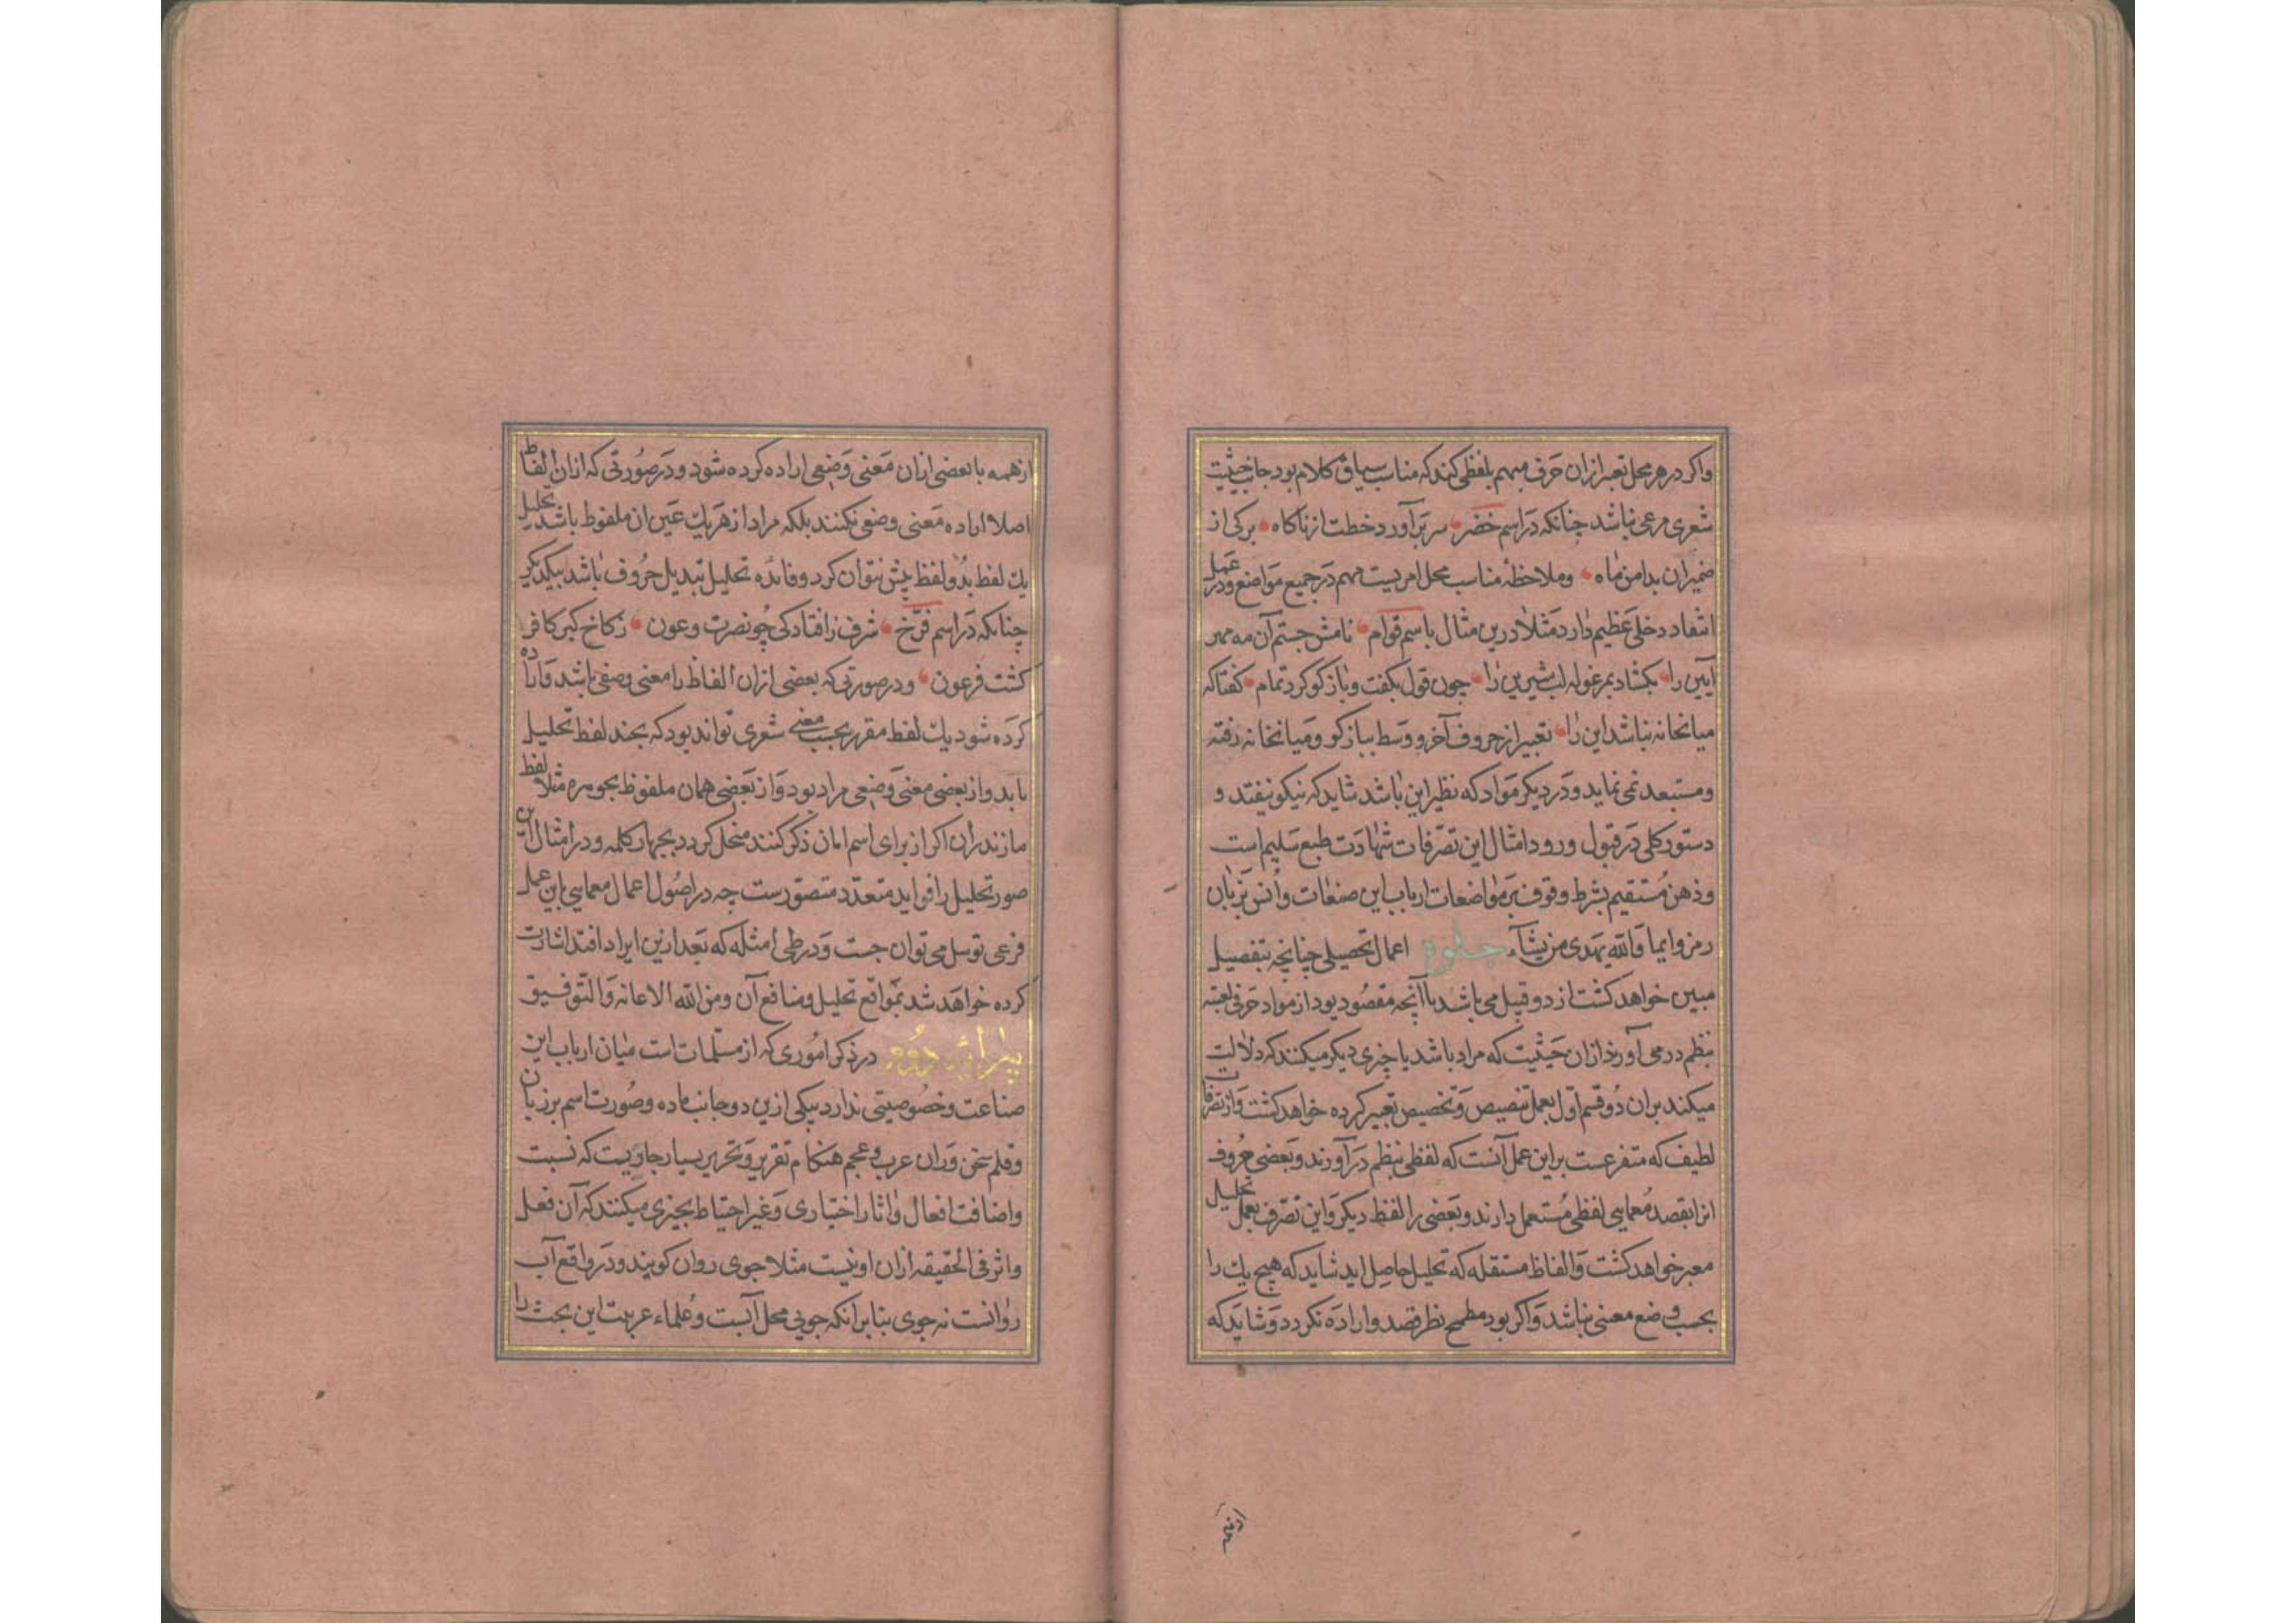 واکر در هر محل تعبیر ازان حرف مبهم بلفظی کند که مناسب سیاق کلام بود جانب حیثیت
شعری مرعی نباشد چنانکه در اسم خضر سر برآورد خطت از ناکاه برکی از
ضمیران بدامن ماه وملاحظۀ مناسب محل امریست مهم در جمیع مواضع ودر عمل
انتقاد دخلی عظیم دارد مثلا درین مثال باسم قوام نامش جستم آن مه مهر
آیین را بکشاد بمرغوله لب شیرین را چون قول بکفت وباز کو کرد تمام کفتا که
میانخانه نباشد این را تعبیر از حروف آخر و وسط بباز کو ومیانخانه رفته
ومستبعد نمی نماید ودر دیکر مواد که نظیر این باشد شاید که نیکو نیفتد و
دستور کلی در قبول ورود امثال این تصرفات شهادت طبع سلیم است
وذهن مستقیم بشرط وقوف بر مواضعات ارباب این صنعات وانس بزبان
رمز وایما والله یهدی من یشآء جلوة اعمال تحصیلی چنانچه بتفصیل
مبین خواهد کشت از دو قبیل می باشد با آنچه مقصود بود از مواد حرفی بعینه
بنظم در می آورند ازان حیثیت که مراد باشد یا چیزی دیکر میکنند که دلالت
میکند بران دو قسم اول بعمل تنصیص وتخصیص تعبیر کرده خواهد کشت واز تصرفات
لطیف که متفرعست براین عمل آنست که لفظی بنظم درآورند وبعضی حروف
انرا بقصد معمایی لفظی مستعمل دارند وبعضی را لفظ دیکر واین تصرف بعمل تحلیل
معبر خواهد کشت والفاظ مستقله که تحلیل حاصل اید شاید که هیچ یك را
بحسب وضع معنی نباشد واکر بود مطمح نظر قصد واراده نکردد وشاید که
ازهمه
ازهمه با بعضی ازان معنی وضعی اراده کرده شود ودر صورتی که ازان الفاظ
اصلا اراده معنی وضعی نکنند بلکه مراد از هر یك عین ان ملفوظ باشد تحلیل
یك لفظ بدو لفظ بیش نتوان کرد وفائده تحلیل تبدیل حروف باشد بیکدیکر
چنانکه در اسم فرخ شرف زافتادکی چو نصرت وعون زکاخ کبر کافر
کشت فرعون ودر صورتی که بعضی ازان الفاظ را معنی وضعی باشد واراده
کرده شود یك لفظ مقرر بحسب معنی شعری تواند بود که بچند لفظ تحلیل
یابد واز بعضی معنی وضعی مراد بود واز بعضی همان ملفوظ بجومره مثلا لفظ
مازندران اکر از برای اسم امان ذکر کنند منحل کردد بچهار کلمه ودر امثال این
صور تحلیل را فواید متعدد متصورست چه در اصول اعمال معمایی باین عمل
فرعی توسل می توان جست ودر طی امثله که بعد ازین ایراد افتد اشارت
کرده خواهد شد بمواقع تحلیل ومنافع آن ومن الله الاعانه والتوفیق
پیرایه دوم در ذکر اموری که از مسلمات است میان ارباب این
صناعت وخصوصیتی ندارد بیکی ازین دو جانب ماده وصورت اسم بر زبان
وقلم سخن وران عرب وعجم هنکام تقریر وتحریر بسیار جاریست که نسبت
واضافت افعال واثار اختیاری وغیر احتیاط بچیزی میکنند که آن فعل
واثر فی الحقیقه ازان او نیست مثلا جوی روان کویند ودر واقع آب
روانست نه جوی بنابر انکه جویی محل آبست وعلماء عربیت این بحث را